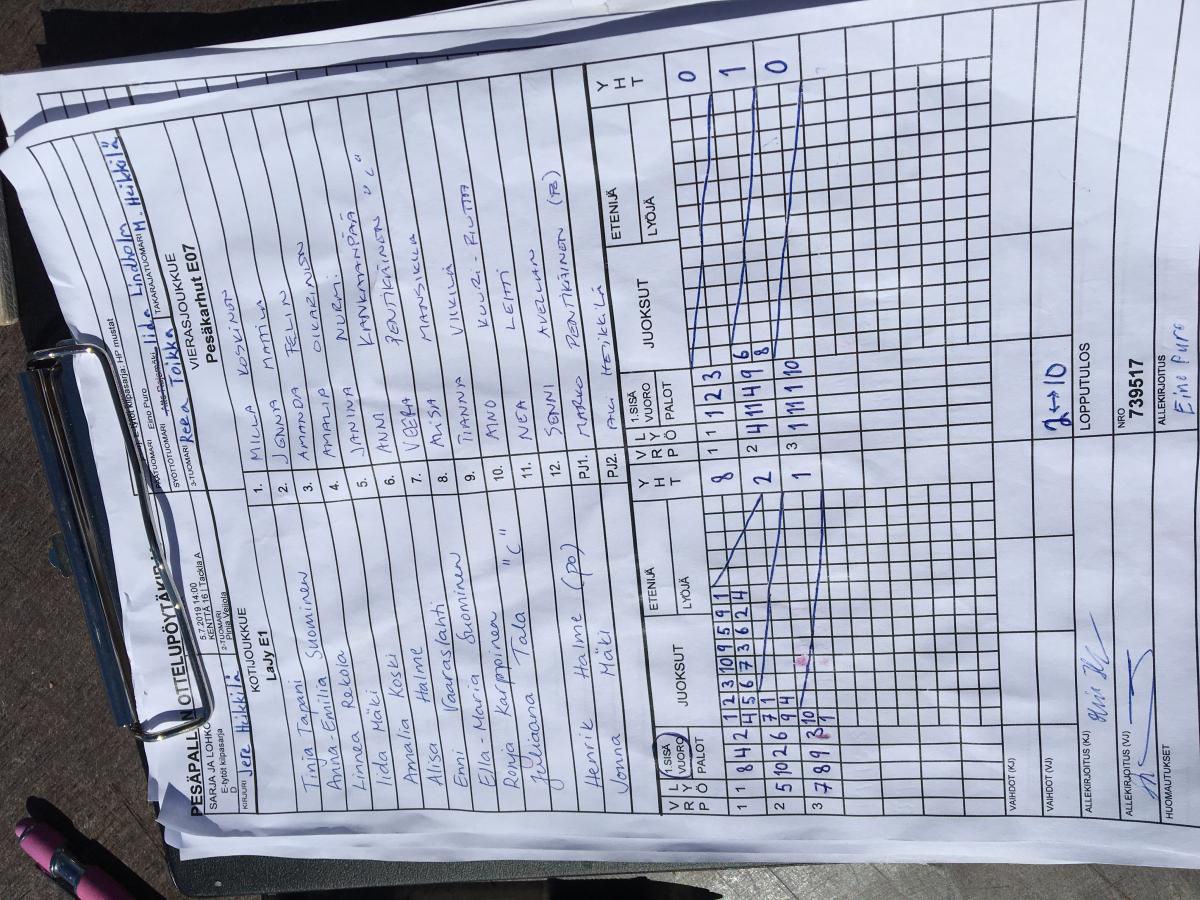 PESÄPALLON OTTELUPÖYTÄKIRJA
SARJA JA LOHKO
E-tytöt kilpasarja
D
5.7.2019 14:00
KENTTÄ 16 | Tackla A
PÄÄTUOMARI Eino Puro
SYÖTTÖTUOMARI Iida Lindholm
2-TUOMARI
Pinja Veijola
3-TUOMARI Reea Toikka
TAKARAJATUOMARI M. Heikkilä
KIRJURI Jere Heikkilä
KOTIJOUKKUE
LaJy E1
VIERASJOUKKUE
Pesäkarhut E07
Tinja Tapani 1. MILLA KOSKINEN
Anna-Emilia Suominen 2. JENNA MATTILA
Linnea Rekola 3. AMANDA PELIN
Iida Mäki 4. AMALIA OIKARINEN
Amalia Koski 5. JANINA NURMI
Alisa Halme 6. ANNI KANKAANPÄÄ "C"
Enni Vaaraslahti 7. VEERA PENTIKÄINEN
Ella Maria Suominen 8. AISA MANSIKKA
Ronja Karppinen "C" 9. TIANNA VIKKILÄ
Juliaana Tala 10. AINO KUURI-RIUTTA
11. NEA LEHTI
12. SENNI AVELLAN
Henrik Halme (PO) PJ1. MARKO PENTIKÄINEN (PO)
Jonna Mäki PJ2. AKI HEIKKILÄ
VRP LYÖ 1.SISÄ VUORO PALOT JUOKSUT ETENIJÄ LYÖJÄ YHT VRP LYÖ 1.SISÄ VUORO PALOT JUOKSUT ETENIJÄ LYÖJÄ YHT
1 1 8 4 2 1 2 3 10 9 5 9 1 8 1 1 1 2 3 0
4 5 6 7 3 6 2 4
2 5 10 2 6 7 1 2 2 4 11 4 9 6 1
9 4 8
3 7 8 9 3 10 1 3 1 11 1 10 0
1
VAIHDOT (KJ)
VAIHDOT (VJ) 2↔10
ALLEKIRJOITUS (KJ) LOPPUTULOS
ALLEKIRJOITUS (VJ) NRO
739517
HUOMAUTUKSET ALLEKIRJOITUS
Eino Puro